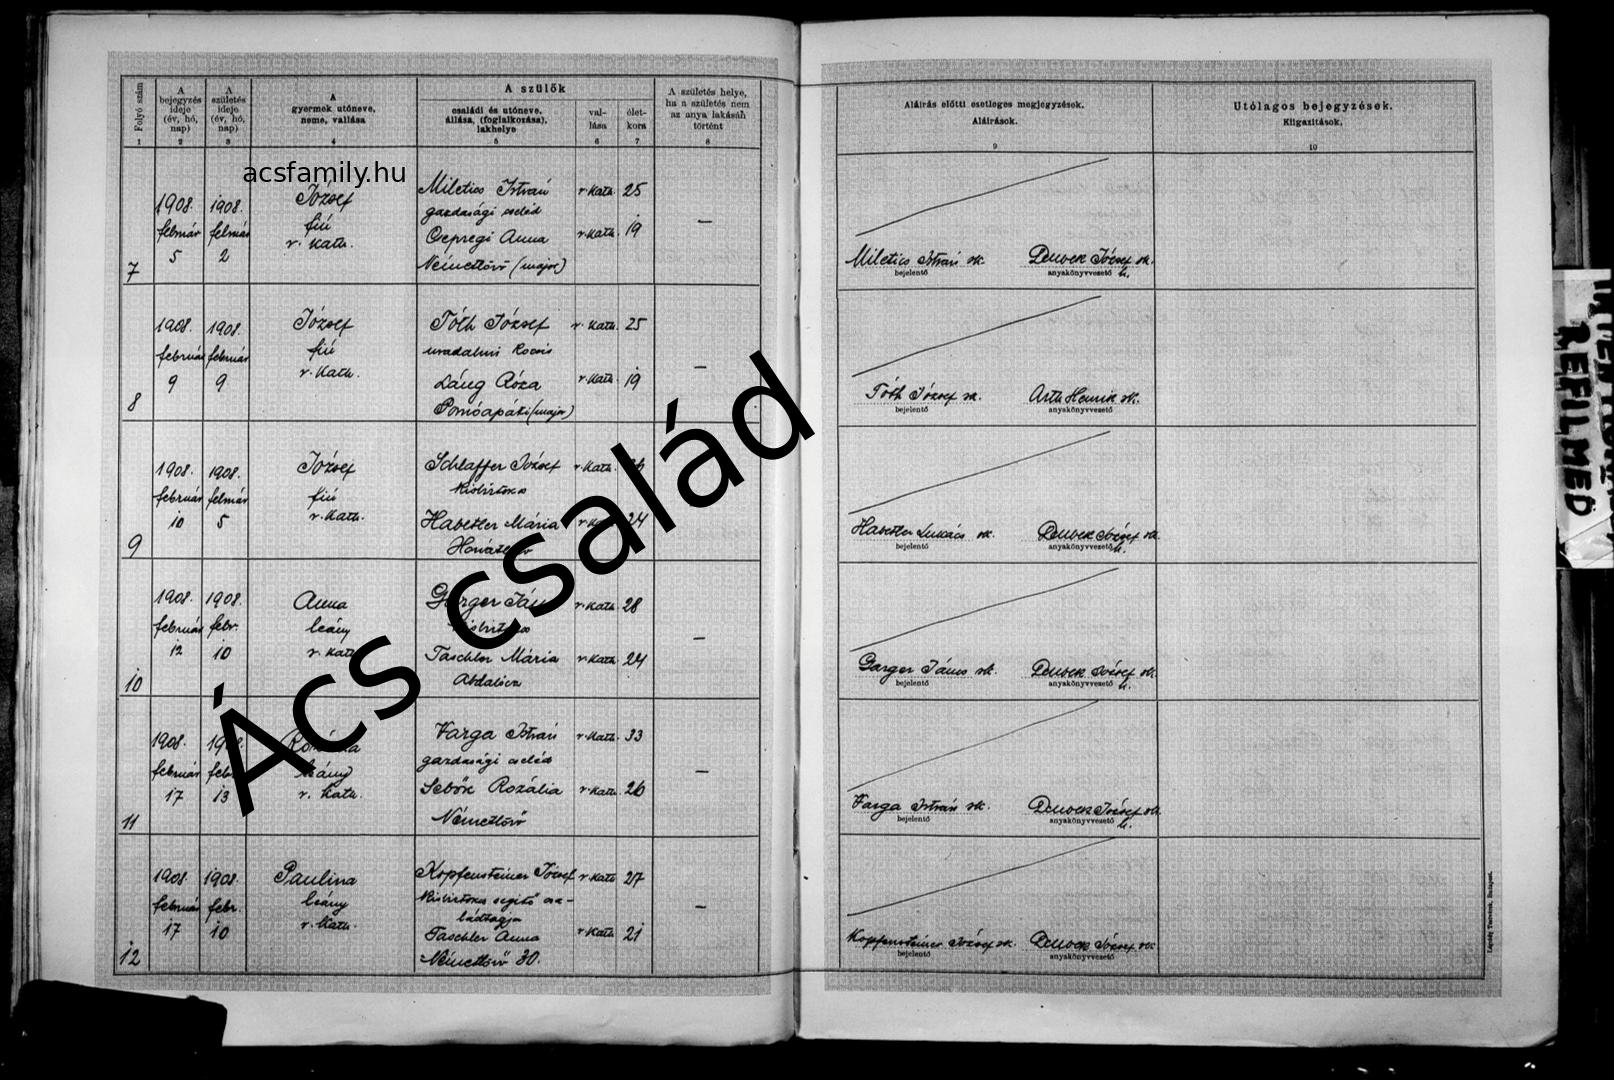 Folyó szám
A bejegyzés ideje (év, hó, nap)
A születés ideje (év, hó, nap)
A gyermek utóneve, neme, vallása
A szülők
családi és utóneve, állása, (foglalkozása), lakhelye
val-lása
élet-kora
A születés helye, ha a születés nem az anya lakásán történt
Aláírás előtti esetleges megjegyzések.
Aláírások.
Utólagos bejegyzések.
Kiigazítások.
1 2 3 4 5 6 7 8 9 10
acsfamily.hu
7
1908. február 5
1908. február 2
József fiú r. kath.
Miletics István r. kath. 25
gazdasági cseléd
Csepregi Anna r. kath. 19
Németlövő (major)
—
Miletics István sk.
bejelentő
József sk.
anyakönyvvezető h.
8
1908. február 9
1908. február 9
József fiú r. kath.
Tóth József r. kath. 25
uradalmi kocsis
Láng Róza r. kath. 19
Pornóapáti (major)
—
Tóth József sk.
bejelentő
Henrik sk.
anyakönyvvezető
9
1908. február 10
1908. február 5
József fiú r. kath.
Schlaffer József r. kath.
kisbirtokos
Habetler Mária r. kath. 24
Habetler Lukács sk.
bejelentő
József sk.
anyakönyvvezető h.
10
1908. február 12
1908. febr. 10
Anna leány r. kath.
Garger r. kath. 28
kisbirtokos
Taschler Mária r. kath. 24
Abdalócz
—
Garger János sk.
bejelentő
József sk.
anyakönyvvezető h.
11
1908. február 17
1908. febr. 13
leány r. kath.
Varga István r. kath. 33
gazdasági cseléd
Sebők Rozália r. kath. 26
Németlövő
—
Varga István sk.
bejelentő
József sk.
anyakönyvvezető h.
12
1908. február 17
1908. febr. 10
Paulina leány r. kath.
Kopfensteiner József r. kath. 27
kisbirtokos segítő csa-
ládtagja
Taschler Anna r. kath. 21
Németlövő 30.
—
Kopfensteiner József sk.
bejelentő
József sk.
anyakönyvvezető
Ács család
REFILMED